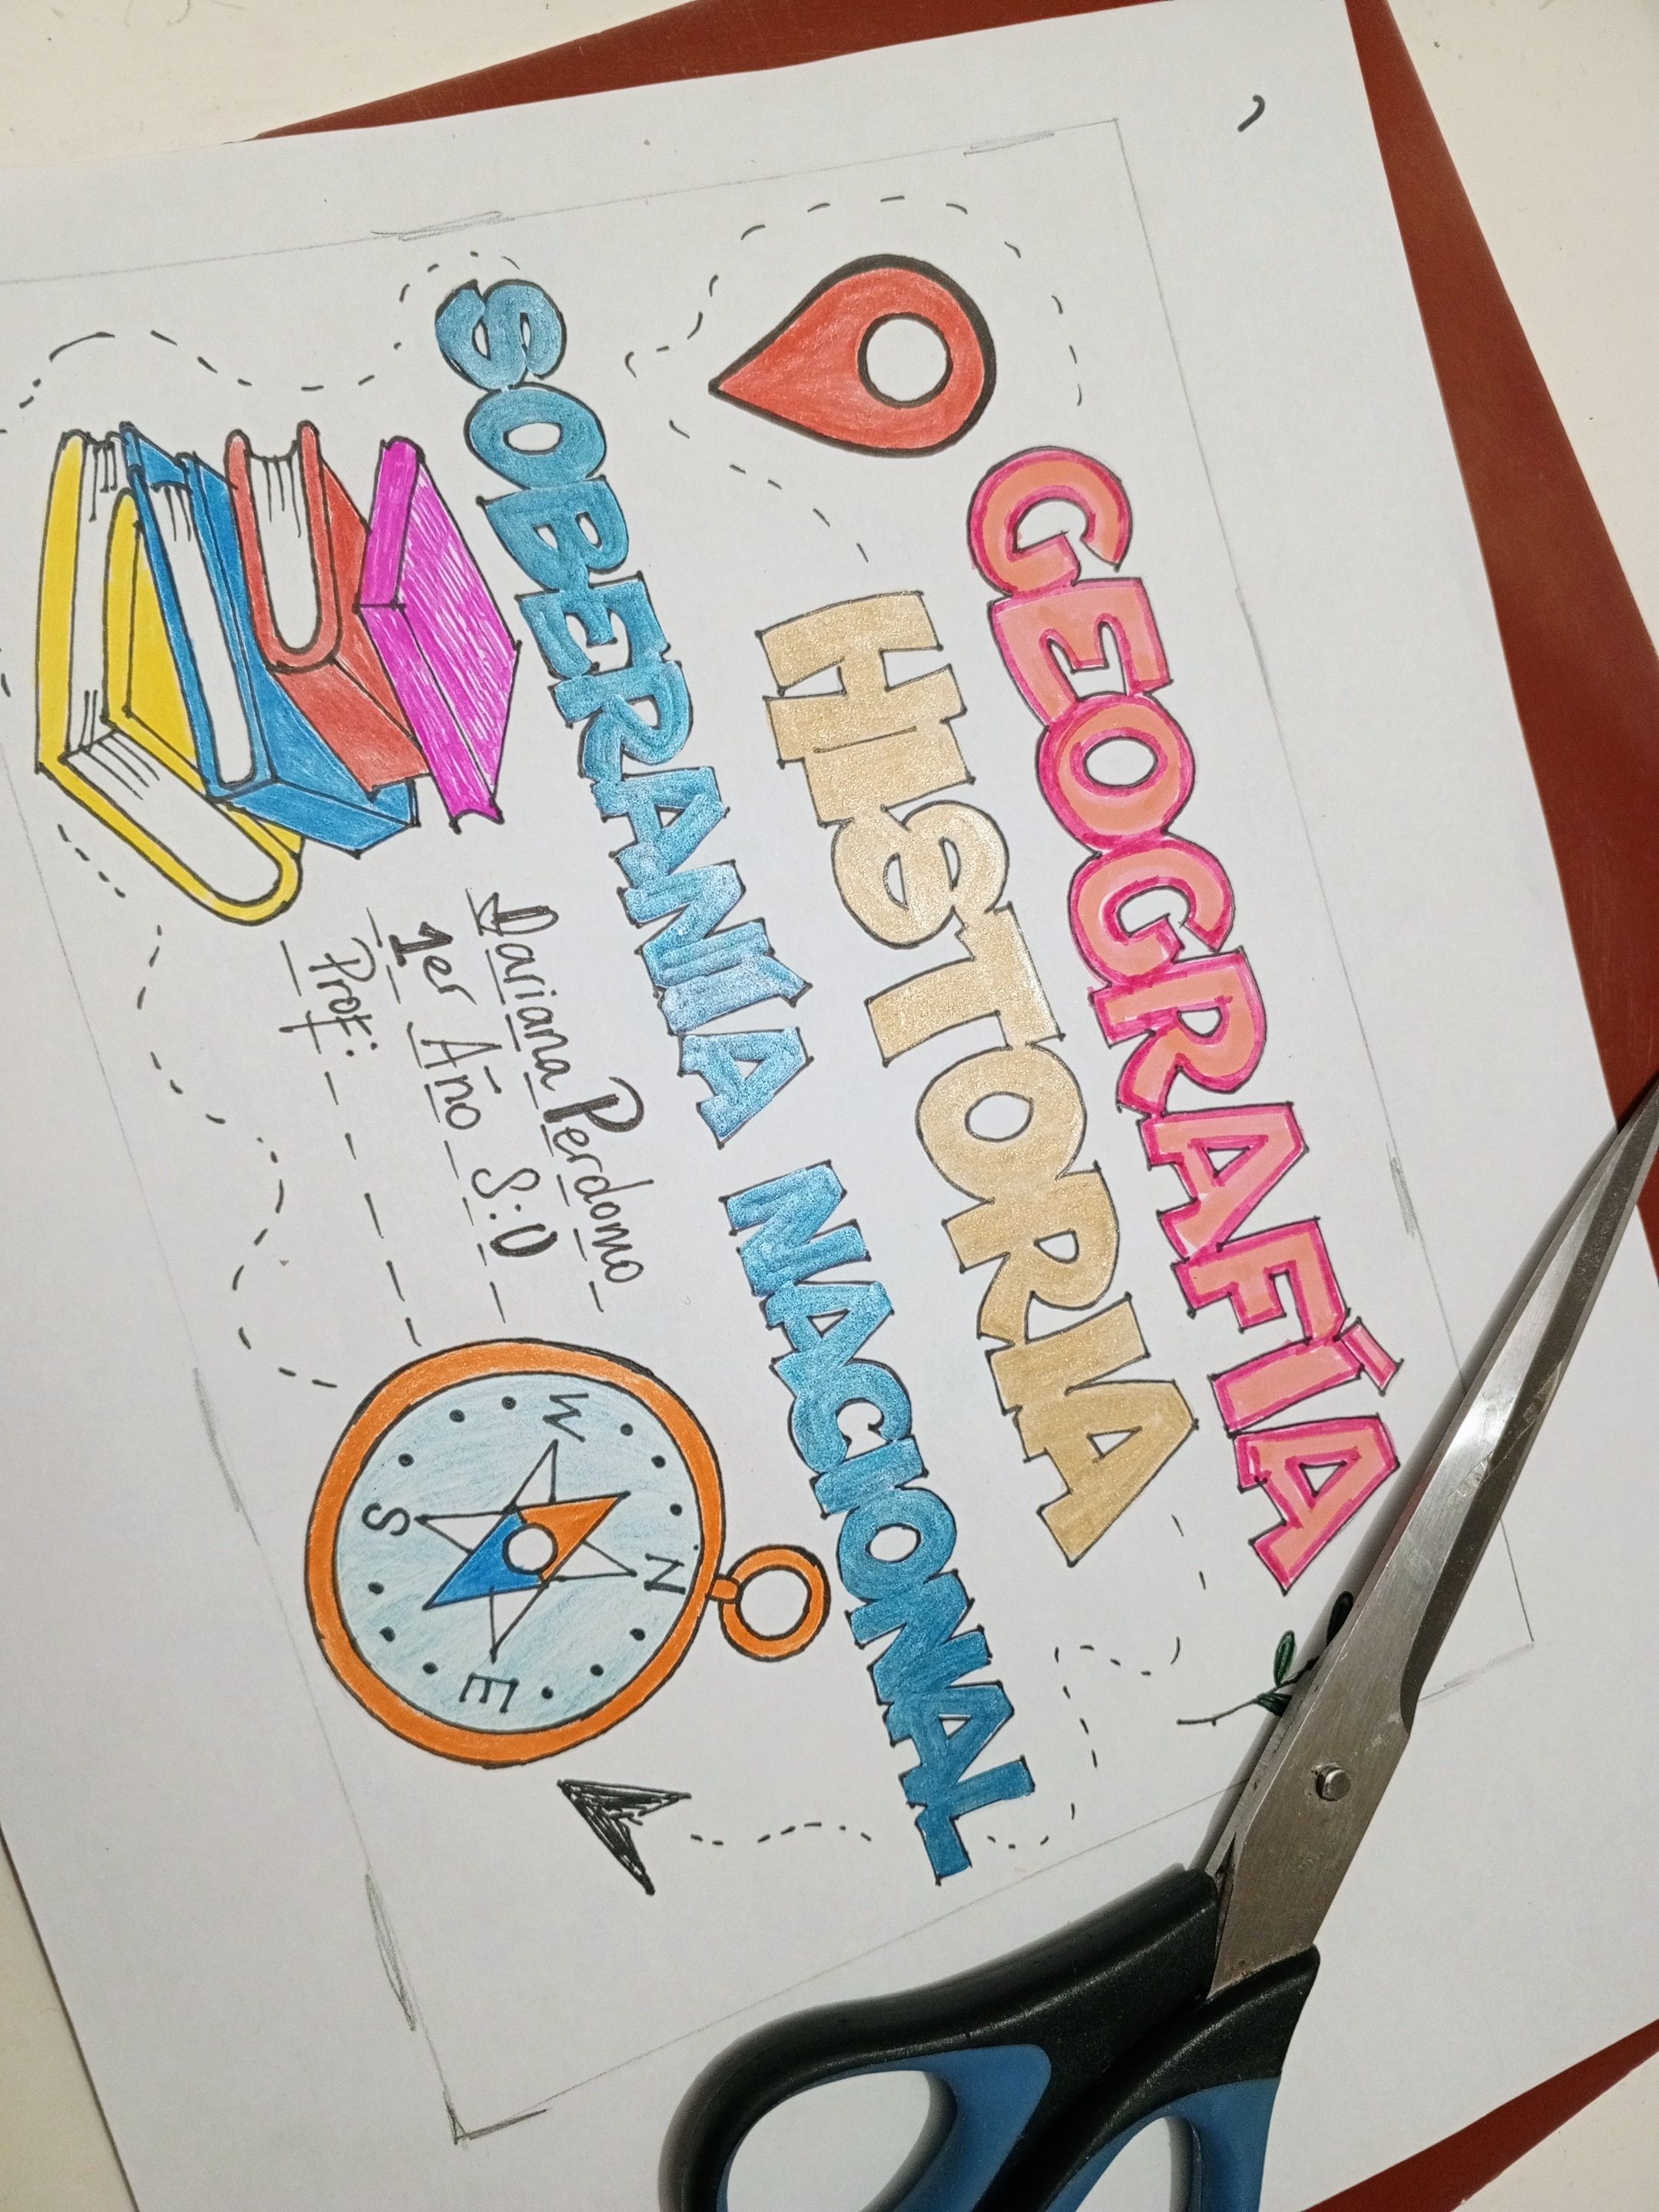 GEOGRAFÍA
HISTORIA
SOBERANÍA NACIONAL
Dariana Perdomo
1er Año S:D
Prof:
N
W
E
S